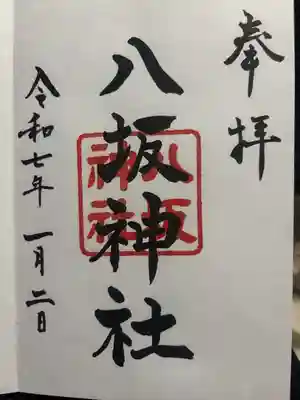 奉拝
八坂神社
八坂
神社
令和七年 一月二日